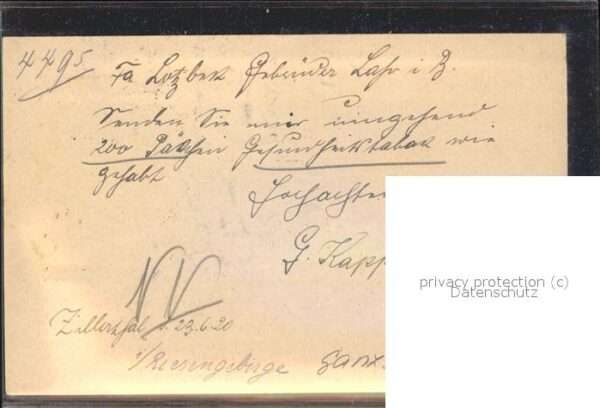 4495
Fa Lotzbek Gebrüder Lahr i. B.
Senden Sie mir umgehend
200 Päkchen Gesundheitstabak wie
gehabt
Hochachten
G. Kapp
Zillerthal 23.6.20
i/Riesengebirge
privacy protection (c)
Datenschutz